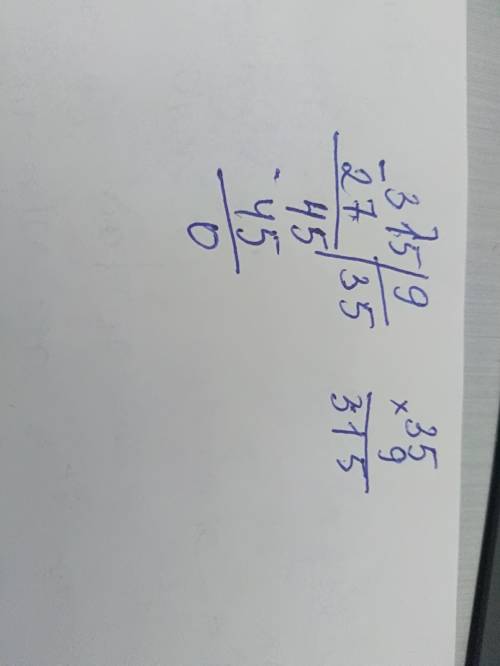 - 315 | 9
27 | 35
45
- 45
0
× 35
9
315